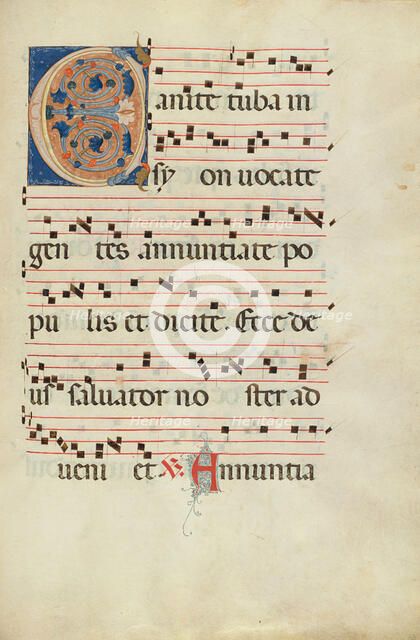 Canite tuba in
sy on uocate
gen tes annuntiate po
pu lis et dicite. Ecce de
us saluator no ster ad
ueni et ℟ Annuntia
Heritage Heritage
Heritage Heritage
Heritage Heritage